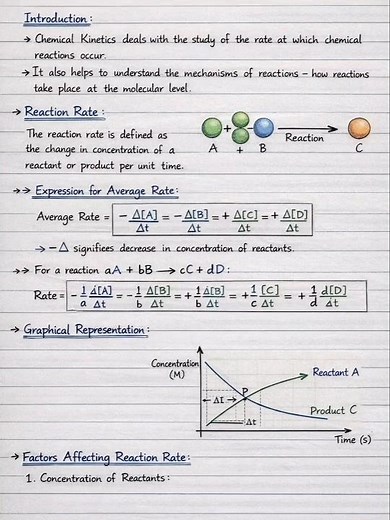 Introduction:
→ Chemical Kinetics deals with the study of the rate at which chemical
reactions occur.
→ It also helps to understand the mechanisms of reactions – how reactions
take place at the molecular level.
→ Reaction Rate:
The reaction rate is defined as
the change in concentration of a
reactant or product per unit time.
+
A + B Reaction C
→→ Expression for Average Rate:
Average Rate = - Δ[A]/Δt = - Δ[B]/Δt = + Δ[C]/Δt = + Δ[D]/Δt
→ -Δ signifiees decrease in concentration of reactants.
→→ For a reaction aA + bB → cC + dD:
Rate = - 1/a Δ[A]/Δt = - 1/b Δ[B]/Δt = + 1/b Δ[B]/Δt = + 1/c [C]/Δt = + 1/d d[D]/Δt
→ Graphical Representation:
Concentration
(M)
Reactant A
P
Δt
Product C
Δt
Time (s)
→ Factors Affecting Reaction Rate:
1. Concentration of Reactants: